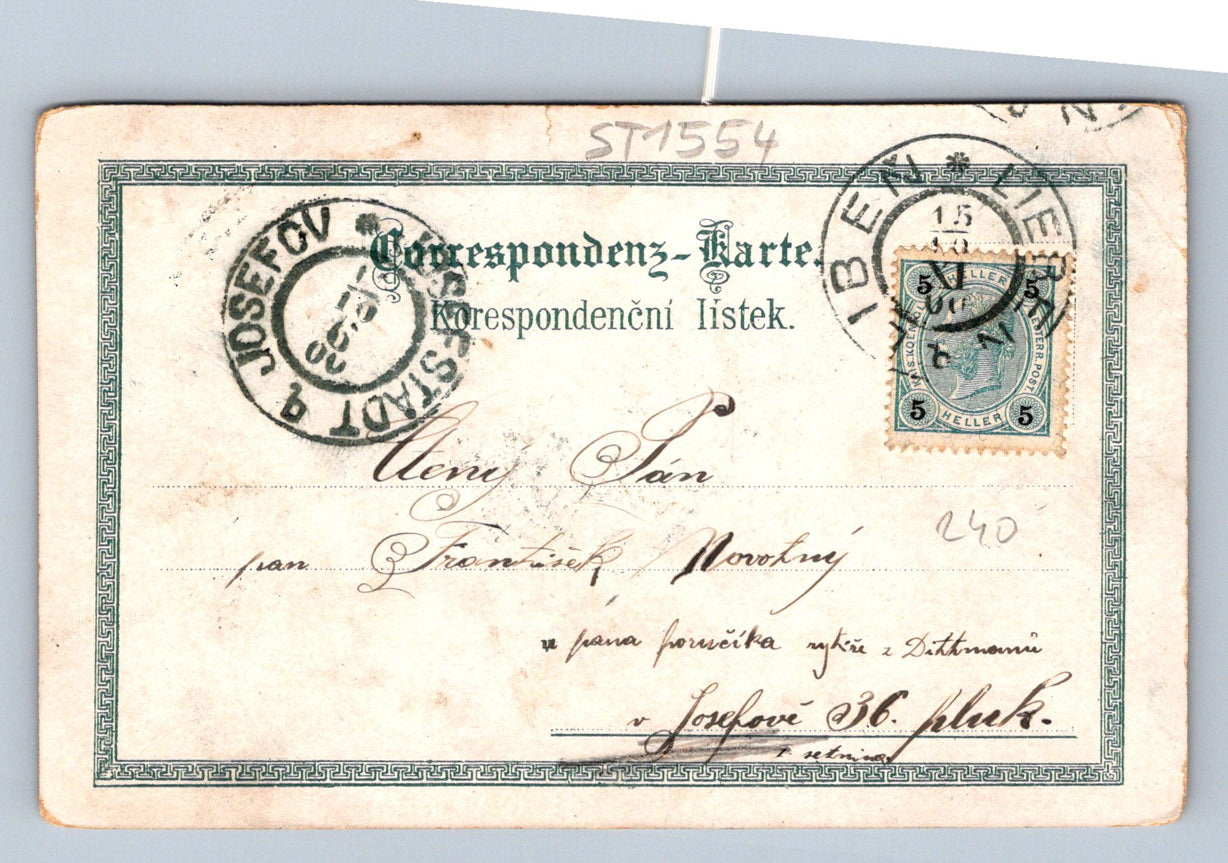 ST1554
Correspondenz-Karte.
Korespondenční lístek.
JOSEFOV * JOSEFSTADT
IBEŇ * LIEBE
15
5 HELLER 5
5 HELLER 5
Ctený Pán
pan František Novotný
240
u pána poručíka rytíře z Dittmanů
v Josefově 36. pluk.
1 setnina